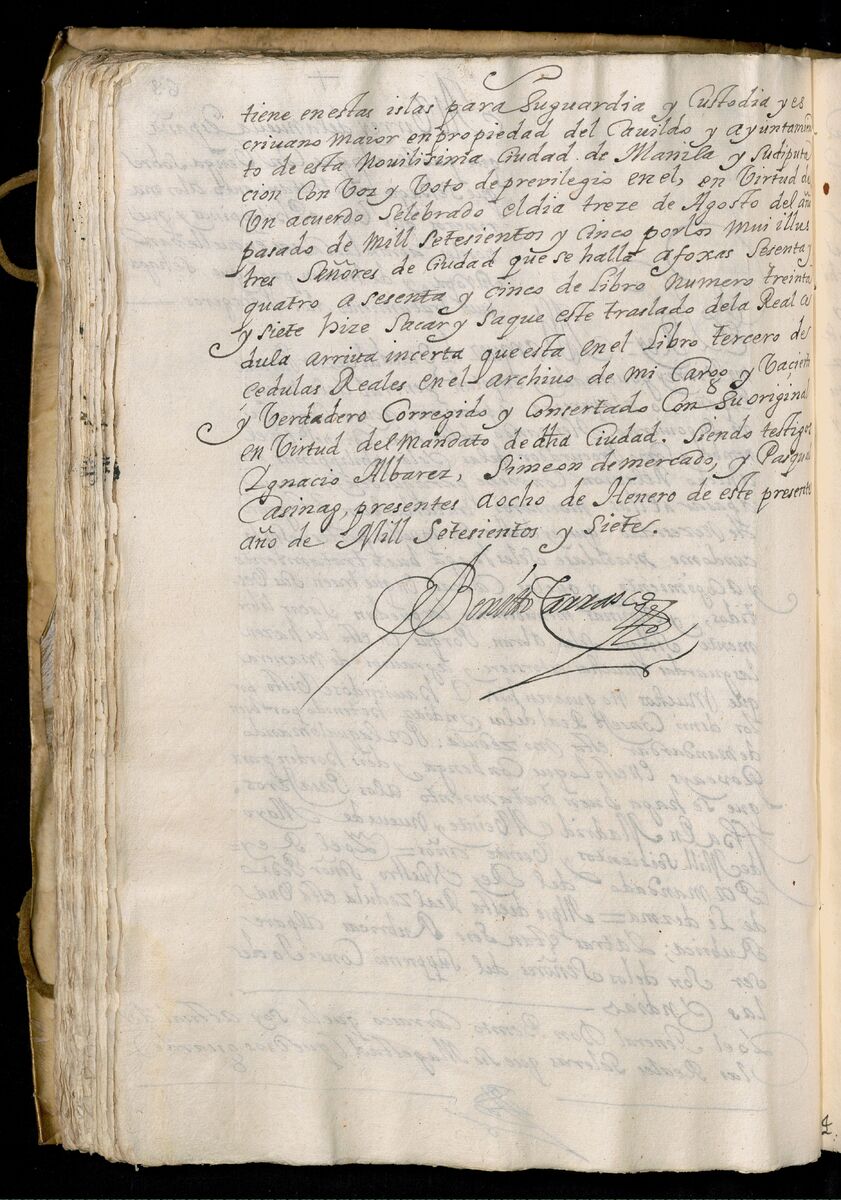 tiene enestas islas para Suguardia y Custodia y es
criuano maior enpropiedad del Cauildo y ayuntamien
to de esta Nouilisima Ciudad de Manila y Sudiputa
cion Con Voz y Voto de previlegio en el, en Virtud de
Un acuerdo Selebrado el dia treze de Agosto del año
pasado de Mill Setesientos y Cinco por los mui illus
tres Señores de Ciudad que se halla afoxas Sesenta y
quatro a sesenta y cinco de Libro Numero treinta
y siete hize Sacar y saque este traslado dela Real ce
dula arriua incerta que esta en el Libro tercero de
cedulas Reales en el archiuo de mi Cargo y Va çierto
y Verdadero Corregido y Concertado Con Su original
en Virtud del Mandato de dha Ciudad. Siendo testigos
Ygnacio Albarez, Simeon de mercado, y Pasqual
Casinag, presentes a ocho de Henero de este presente
año de Mill Setesientos y Siete.
Benitto Carrasco